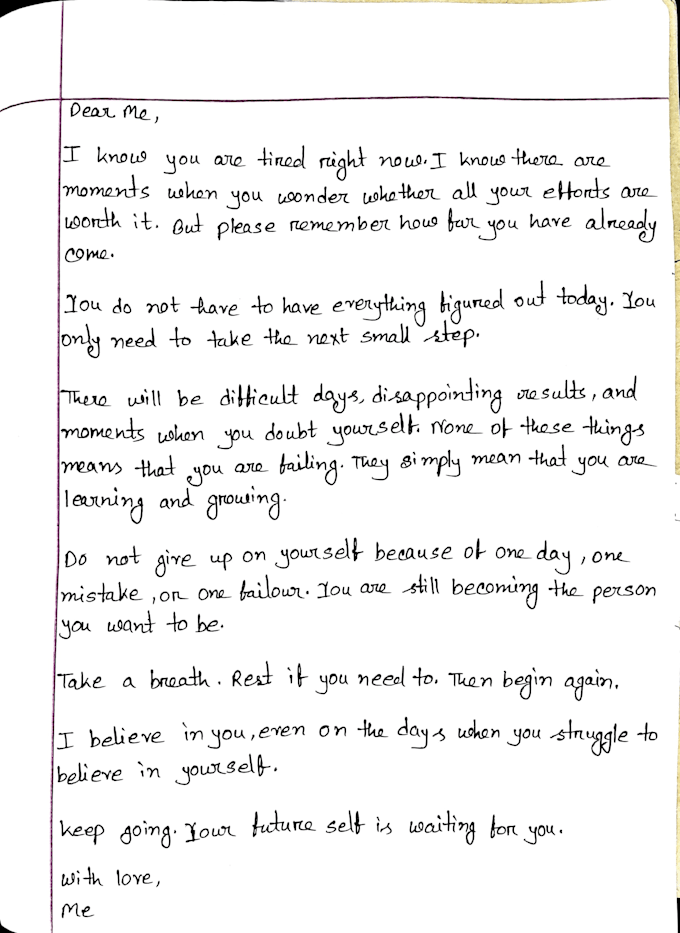 Dear Me,
I know you are tired right now. I know there are
moments when you wonder whether all your efforts are
worth it. But please remember how far you have already
come.
You do not have to have everything figured out today. You
only need to take the next small step.
There will be difficult days, disappointing results, and
moments when you doubt yourself. None of these things
means that you are failing. They simply mean that you are
learning and growing.
Do not give up on yourself because of one day, one
mistake, or one failour. You are still becoming the person
you want to be.
Take a breath. Rest if you need to. Then begin again.
I believe in you, even on the days when you struggle to
believe in yourself.
Keep going. Your future self is waiting for you.
With love,
Me